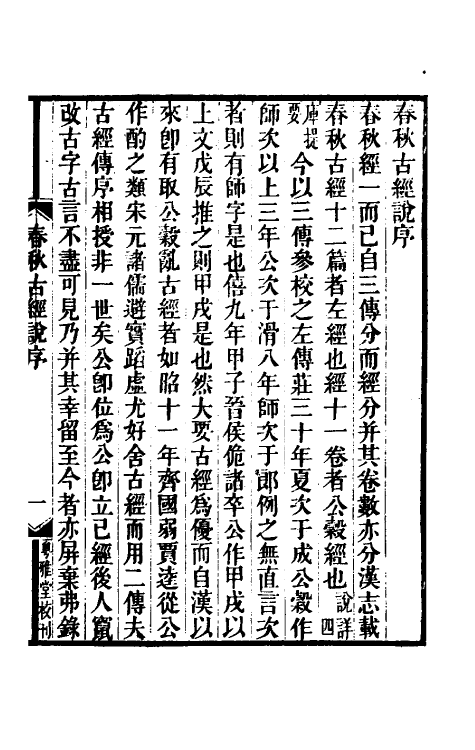 春秋古經說序
春秋經一而已自三傳分而經分并其卷數亦分漢志載
春秋古經十二篇者左經也經十一卷者公穀經也說詳四
庫提要今以三傳參校之左傳莊三十年夏次于成公穀作
師次以上三年公次于滑八年師次于郎例之無直言次
者則有師字是也僖九年甲子晉侯佹諸卒公作甲戌以
上文戊辰推之則甲戌是也然大要古經為優而自漢以
來卽有取公穀亂古經者如昭十一年齊國弱賈逵從公
作酌之類宋元諸儒避實蹈虛尤好舍古經而用二傳夫
古經傳序相授非一世矣公卽位為公卽立已經後人竄
改古字古言不盡可見乃并其幸留至今者亦屏棄弗錄
春秋古經說序
一
粵雅堂校刊